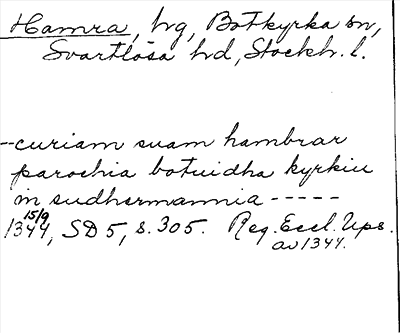 Hamra, hg, Botkyrka sn,
Svartlösa hd, Stockh. l.
--curiam suam hambrar
parochia botuidha kyrkiu
in sudhermannia -----
15/9
1344, SD 5, s. 305. Reg. Eccl. Ups.
av 1344.